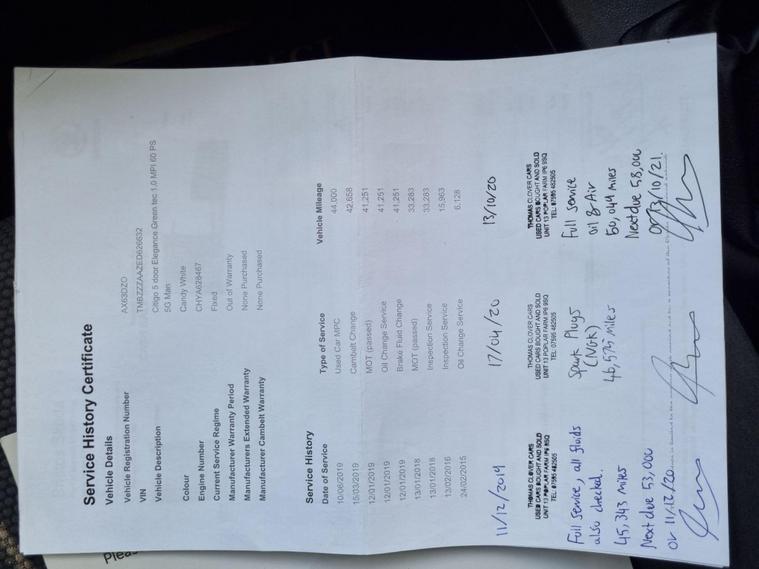 Service History Certificate
Vehicle Details
Vehicle Registration Number AX63DZO
VIN TMBZZZAAZED626632
Vehicle Description Citigo 5 door Elegance Green tec 1.0 MPI 60 PS
5G Man
Colour Candy White
Engine Number CHYA628467
Current Service Regime Fixed
Manufacturer Warranty Period Out of Warranty
Manufacturers Extended Warranty None Purchased
Manufacturer Cambelt Warranty None Purchased
Service History
Date of Service Type of Service Vehicle Mileage
10/06/2019 Used Car MPC 44,000
15/03/2019 Cambelt Change 42,658
12/01/2019 MOT (passed) 41,251
12/01/2019 Oil Change Service 41,251
12/01/2019 Brake Fluid Change 41,251
13/01/2018 MOT (passed) 33,283
13/01/2018 Inspection Service 33,283
13/02/2016 Inspection Service 15,963
24/02/2015 Oil Change Service 6,128
11/12/2019
THOMAS CLOVER CARS
USED CARS BOUGHT AND SOLD
UNIT 13 POPLAR FARM IP6 9SQ
TEL: 07595 482505
Full Service, all fluids
also checked.
45,343 miles
Next due 53,000
or 11/12/20
17/04/20
THOMAS CLOVER CARS
USED CARS BOUGHT AND SOLD
UNIT 13 POPLAR FARM IP6 9SQ
TEL: 07595 482505
Spark Plugs
(NGK)
46,575 miles
13/10/20
THOMAS CLOVER CARS
USED CARS BOUGHT AND SOLD
UNIT 13 POPLAR FARM IP6 9SQ
TEL: 07595 482505
Full Service
oil & Air
50,049 miles
Next due 58,000
or 13/10/21.
Plea